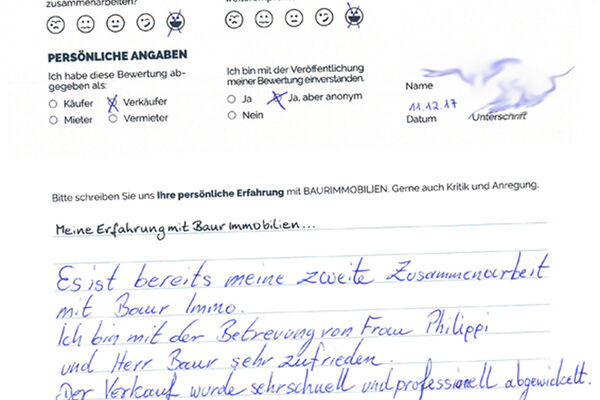 zusammenarbeiten?
PERSÖNLICHE ANGABEN
Ich habe diese Bewertung ab-
gegeben als:
Käufer Verkäufer
Mieter Vermieter
Ich bin mit der Veröffentlichung
meiner Bewertung einverstanden.
Ja Ja, aber anonym
Nein
Name
11.12.17
Datum Unterschrift
Bitte schreiben Sie uns Ihre persönliche Erfahrung mit BAURIMMOBILIEN. Gerne auch Kritik und Anregung.
Meine Erfahrung mit Baur Immobilien...
Es ist bereits meine zweite Zusammenarbeit
mit Baur Immo.
Ich bin mit der Betreuung von Frau Philippi
und Herr Baur sehr zufrieden.
Der Verkauf wurde sehr schnell und professionell abgewickelt.